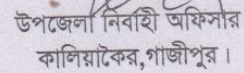 উপজেলা নির্বাহী অফিসার
কালিয়াকৈর, গাজীপুর।